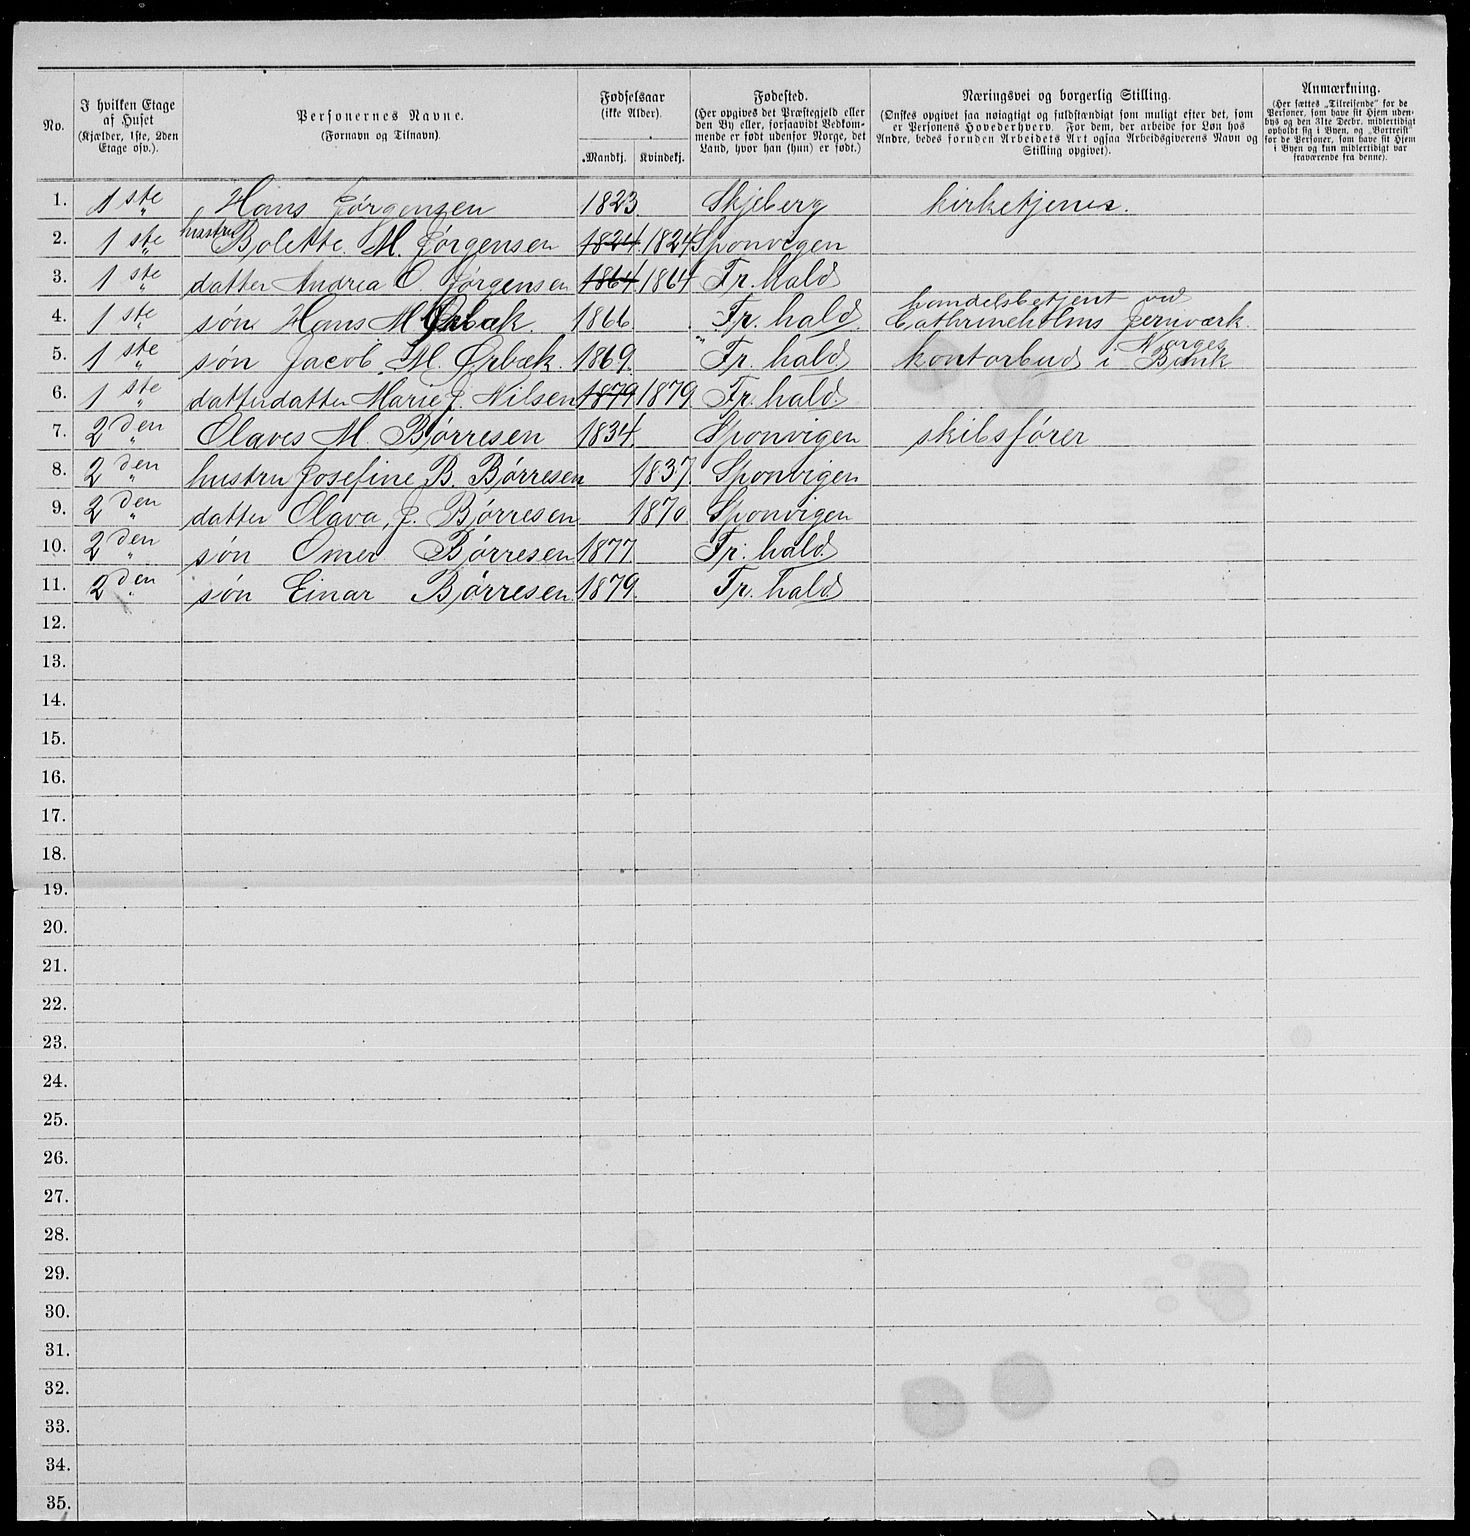 No.
I hvilken Etage af Huset (Kjælder, 1ste, 2den Etage osv.).
Personernes Navne. (Fornavn og Tilnavn).
Fødselsaar (ikke Alder).
Mandkj. Kvindekj.
Fødested. (Her opgives det Præstegjeld eller den By eller, forsaavidt Vedkommende er født udenfor Norge, det Land, hvor han (hun) er født.)
Næringsvei og borgerlig Stilling. (Ønskes opgivet saa nøiagtigt og fuldstændigt som muligt efter det, som er Personens Hovederhverv. For dem, der arbeide for Løn hos Andre, bedes foruden Arbeidets Art ogsaa Arbeidsgiverens Navn og Stilling opgivet).
Anmærkning. (Her sættes „Tilreisende" for de Personer, som have sit Hjem udenbys og den 31te Decbr. midlertidigt opholdt sig i Byen, og „Bortreist" for de Personer, som have sit Hjem i Byen og kun midlertidigt var fraværende fra denne).
1. 1 ste „ Hans Jørgensen 1823. Skjeberg kirketjener.
2. 1 ste „ hustru Bolette M. Jørgensen 1824. 1824 Sponvigen
3. 1 ste „ datter Andrea O. Jørgensen 1864 1864 Fr. hald
4. 1 ste „ søn Hans M Ørbæk. 1866 Fr. hald handelsbetjent ved Cathrineholms Jernværk.
5. 1 ste „ søn Jacob. M. Ørbæk. 1869. „ Fr. hald kontorbud i Norges Bank
6. 1 ste „ datterdatter Marie J. Nilsen 1879 1879. Fr. hald
7. 2 den „ Olaves M. Børresen 1834. Sponvigen skibsfører
8. 2 den „ hustru Josefine B. Børresen 1837. Sponvigen
9. 2 den „ datter Olava, J. Børresen 1870 Sponvigen
10. 2 den „ søn Omer Børresen 1877 Fr. hald
11. 2 den „ søn Einar Børresen. 1879. Fr. hald
12.
13.
14.
15.
16.
17.
18.
19.
20.
21.
22.
23.
24.
25.
26.
27.
28.
29.
30.
31.
32.
33.
34.
35.